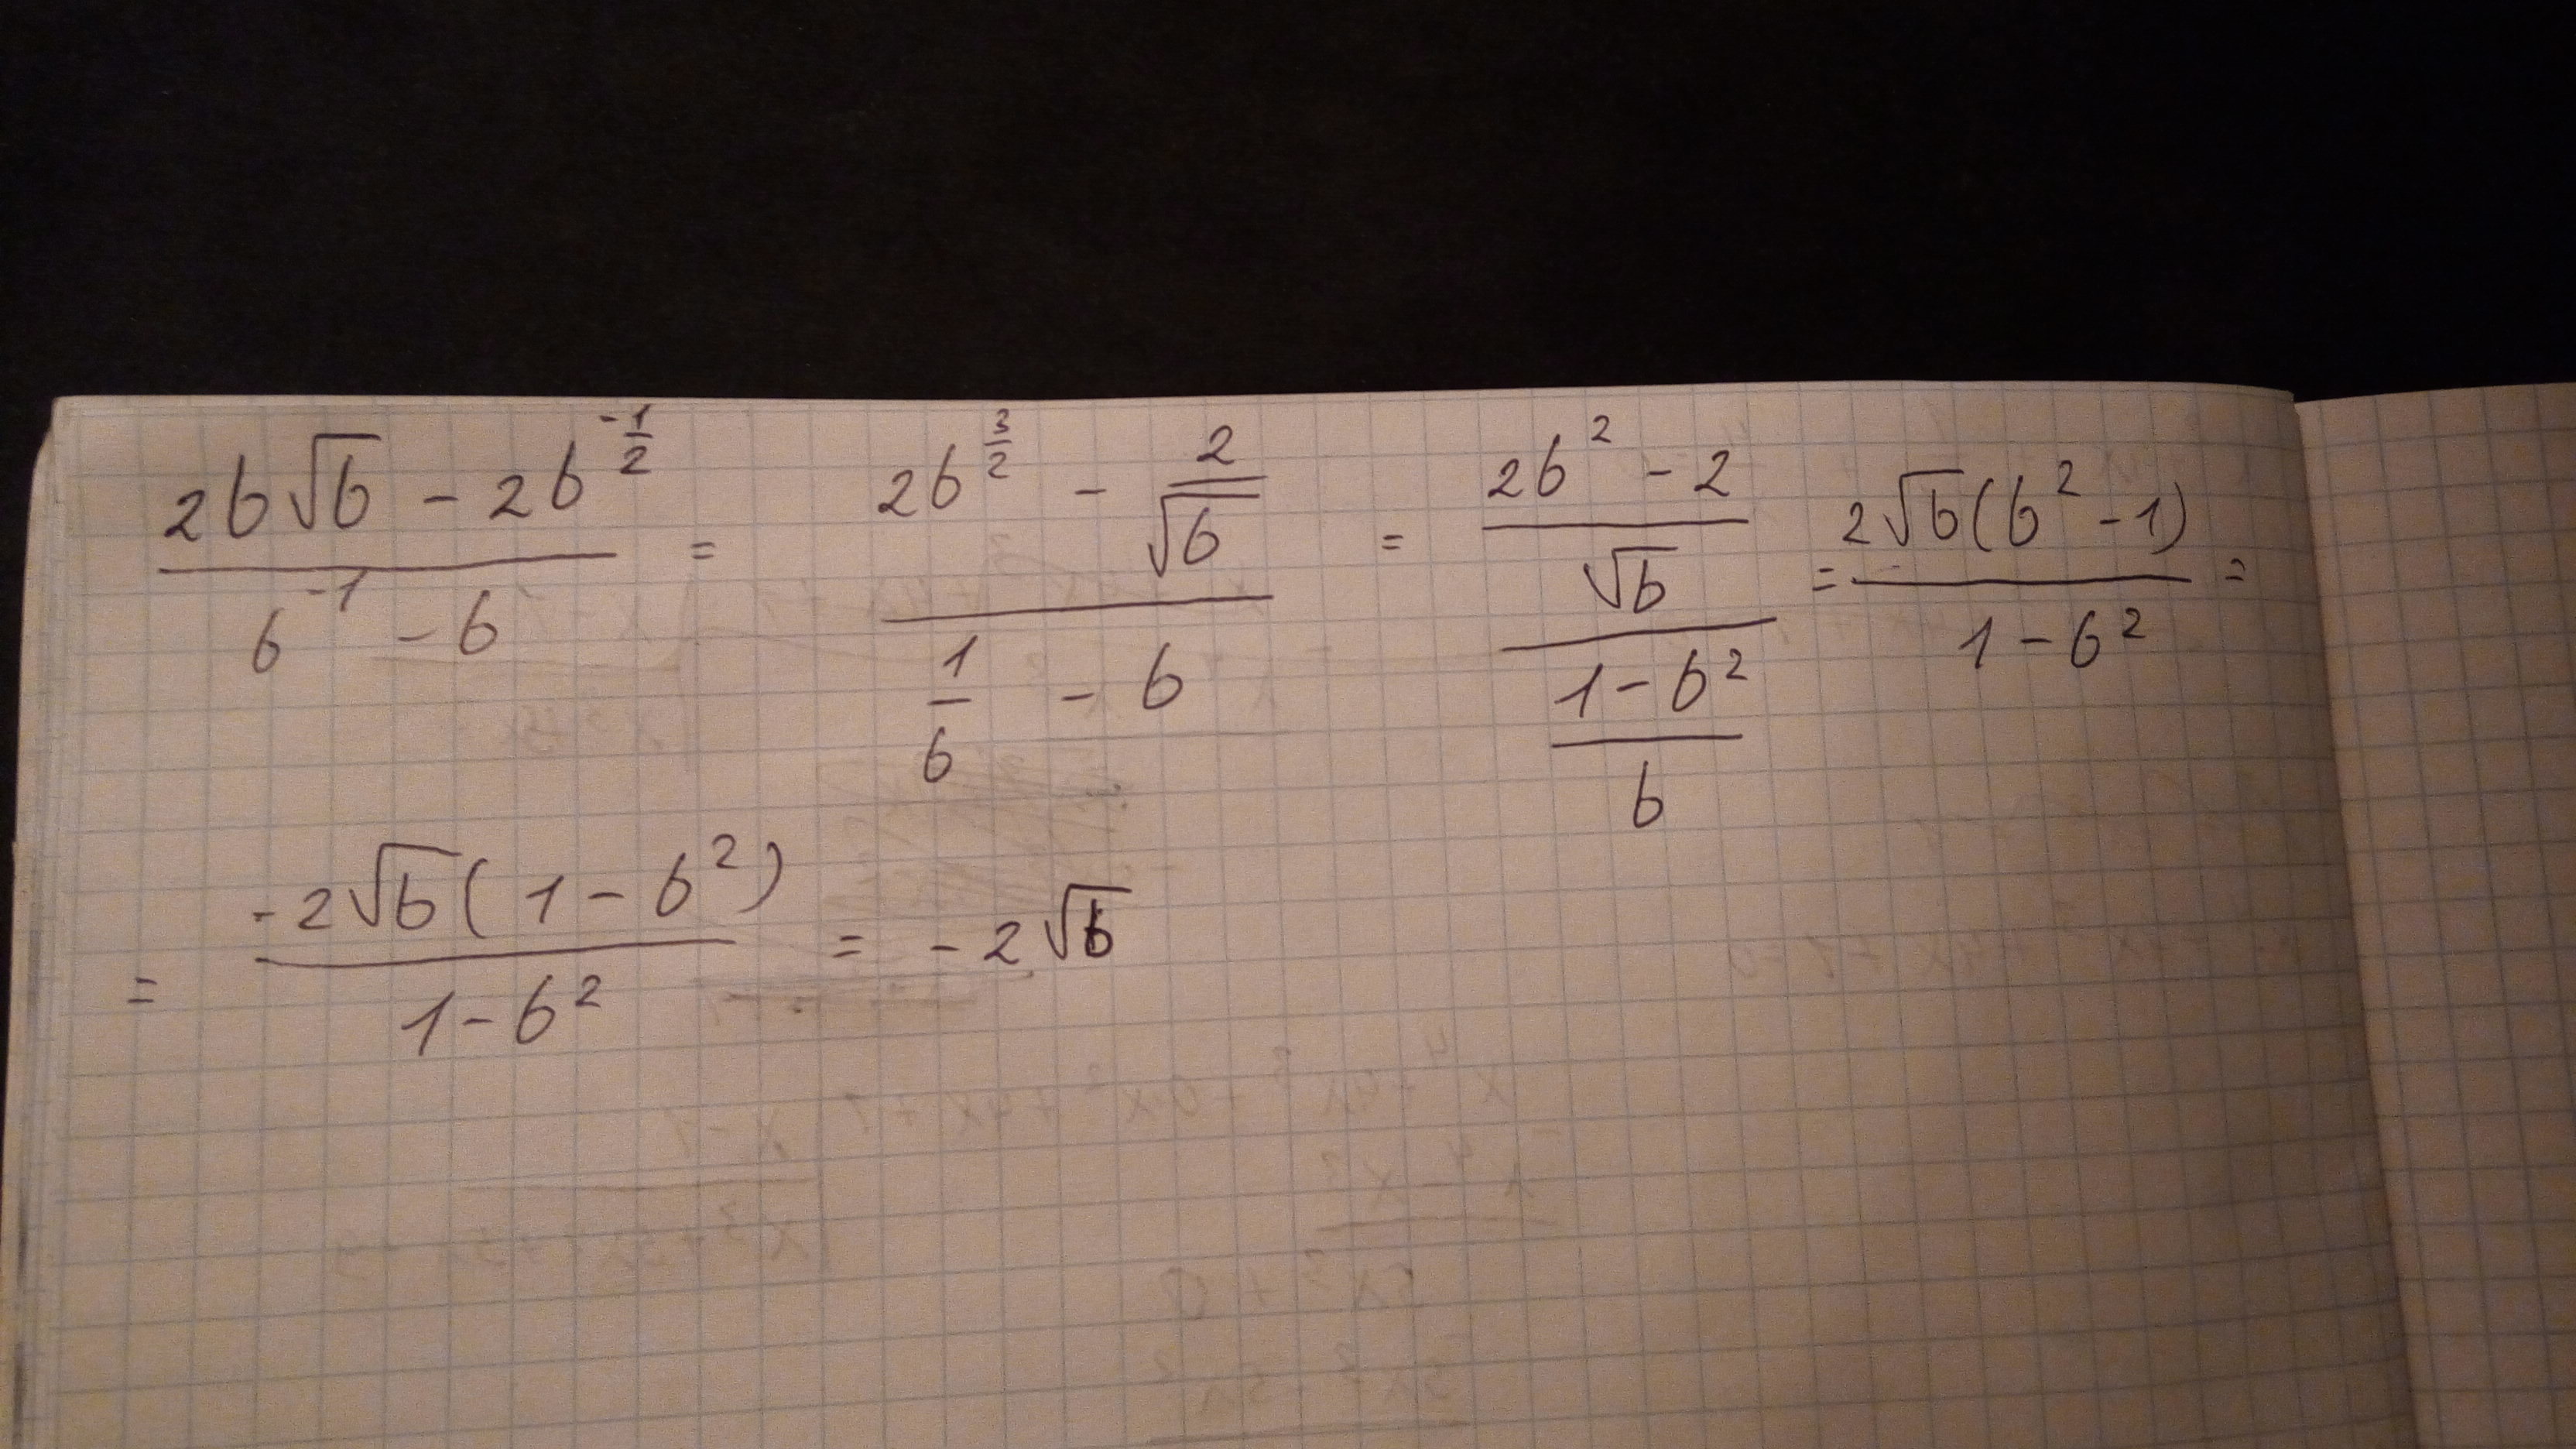 (2b√b - 2b^(-1/2)) / (b^(-1) - b) = (2b^(3/2) - 2/√b) / (1/b - b) = ((2b² - 2)/√b) / ((1 - b²)/b) = 2√b(b² - 1) / (1 - b²) =
= -2√b(1 - b²) / (1 - b²) = -2√b